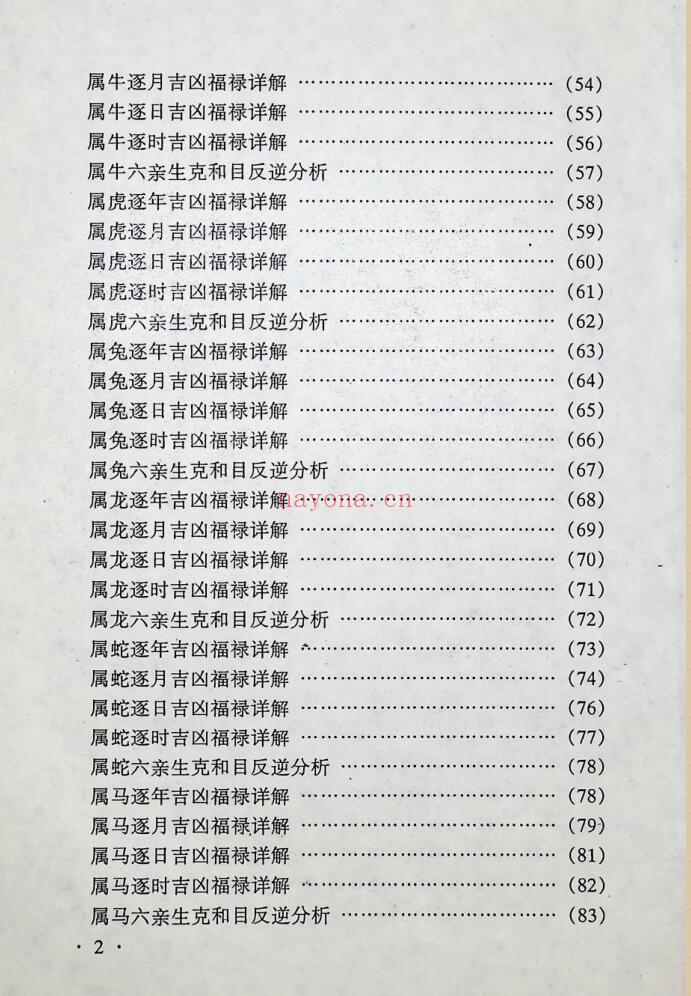 属牛逐月吉凶福禄详解 ……………………………… (54)
属牛逐日吉凶福禄详解 ……………………………… (55)
属牛逐时吉凶福禄详解 ……………………………… (56)
属牛六亲生克和目反逆分析 ………………………… (57)
属虎逐年吉凶福禄详解 ……………………………… (58)
属虎逐月吉凶福禄详解 ……………………………… (59)
属虎逐日吉凶福禄详解 ……………………………… (60)
属虎逐时吉凶福禄详解 ……………………………… (61)
属虎六亲生克和目反逆分析 ………………………… (62)
属兔逐年吉凶福禄详解 ……………………………… (63)
属兔逐月吉凶福禄详解 ……………………………… (64)
属兔逐日吉凶福禄详解 ……………………………… (65)
属兔逐时吉凶福禄详解 ……………………………… (66)
属兔六亲生克和目反逆分析 ………………………… (67)
属龙逐年吉凶福禄详解 ……………………………… (68)
nayona.cn
属龙逐月吉凶福禄详解 ……………………………… (69)
属龙逐日吉凶福禄详解 ……………………………… (70)
属龙逐时吉凶福禄详解 ……………………………… (71)
属龙六亲生克和目反逆分析 ………………………… (72)
属蛇逐年吉凶福禄详解 ……………………………… (73)
属蛇逐月吉凶福禄详解 ……………………………… (74)
属蛇逐日吉凶福禄详解 ……………………………… (76)
属蛇逐时吉凶福禄详解 ……………………………… (77)
属蛇六亲生克和目反逆分析 ………………………… (78)
属马逐年吉凶福禄详解 ……………………………… (78)
属马逐月吉凶福禄详解 ……………………………… (79)
属马逐日吉凶福禄详解 ……………………………… (81)
属马逐时吉凶福禄详解 ……………………………… (82)
属马六亲生克和目反逆分析 ………………………… (83)
· 2 ·